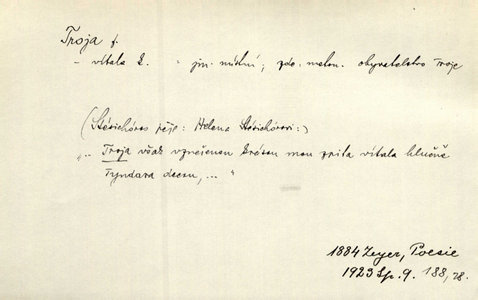 Troja f.
- vítala 2. - jm. místní, zde. meton. obyvatelstvo Troje
(Stésichóros pěje: Helena Stésichórovi:)
"... Troja však vznešenou krásou mou zpita vítala hlučně
Tyndara dceru, ... "
1884 Zeyer, Poesie
1923 Sp. 9. 188, 28.